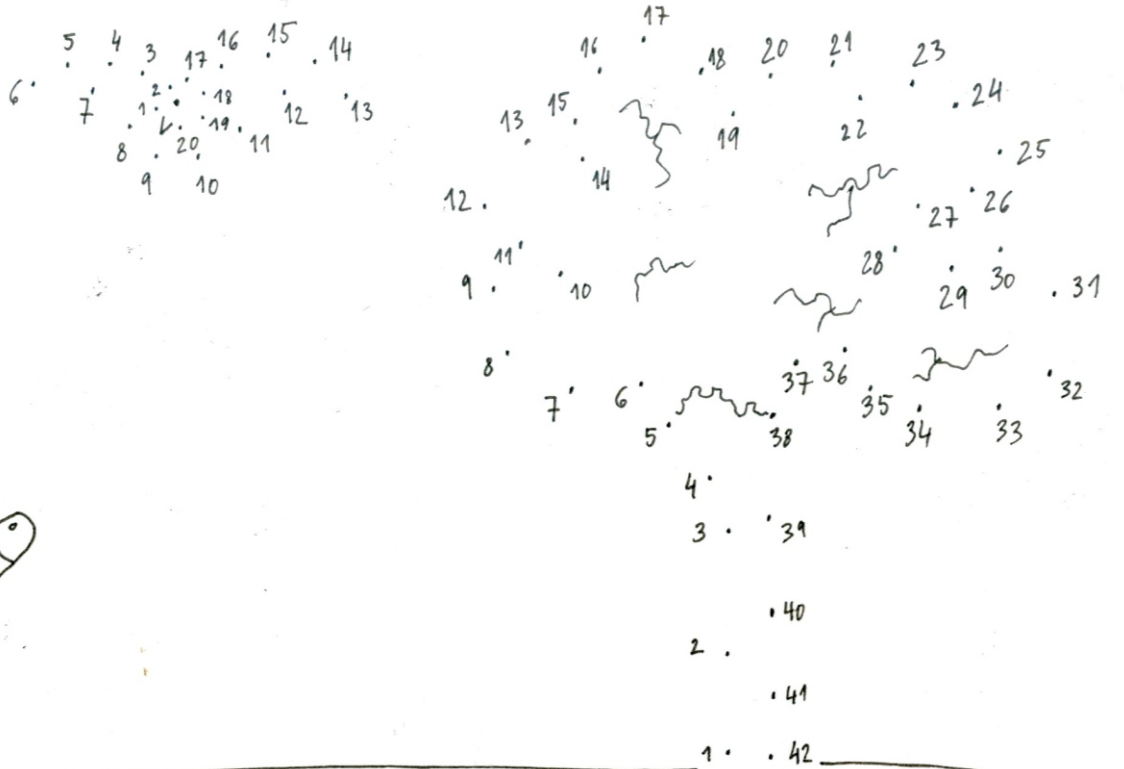 5 4 3 17 16 15 14
6 7 1 2 18 12 13
8 20 19 11
9 10
17
16 18 20 21 23
13 15 19 22 24
14 25
12 27 26
11 28
9 10 29 30 31
8 37 36
7 6 35 32
5 38 34 33
4
3 39
40
2
41
1 42